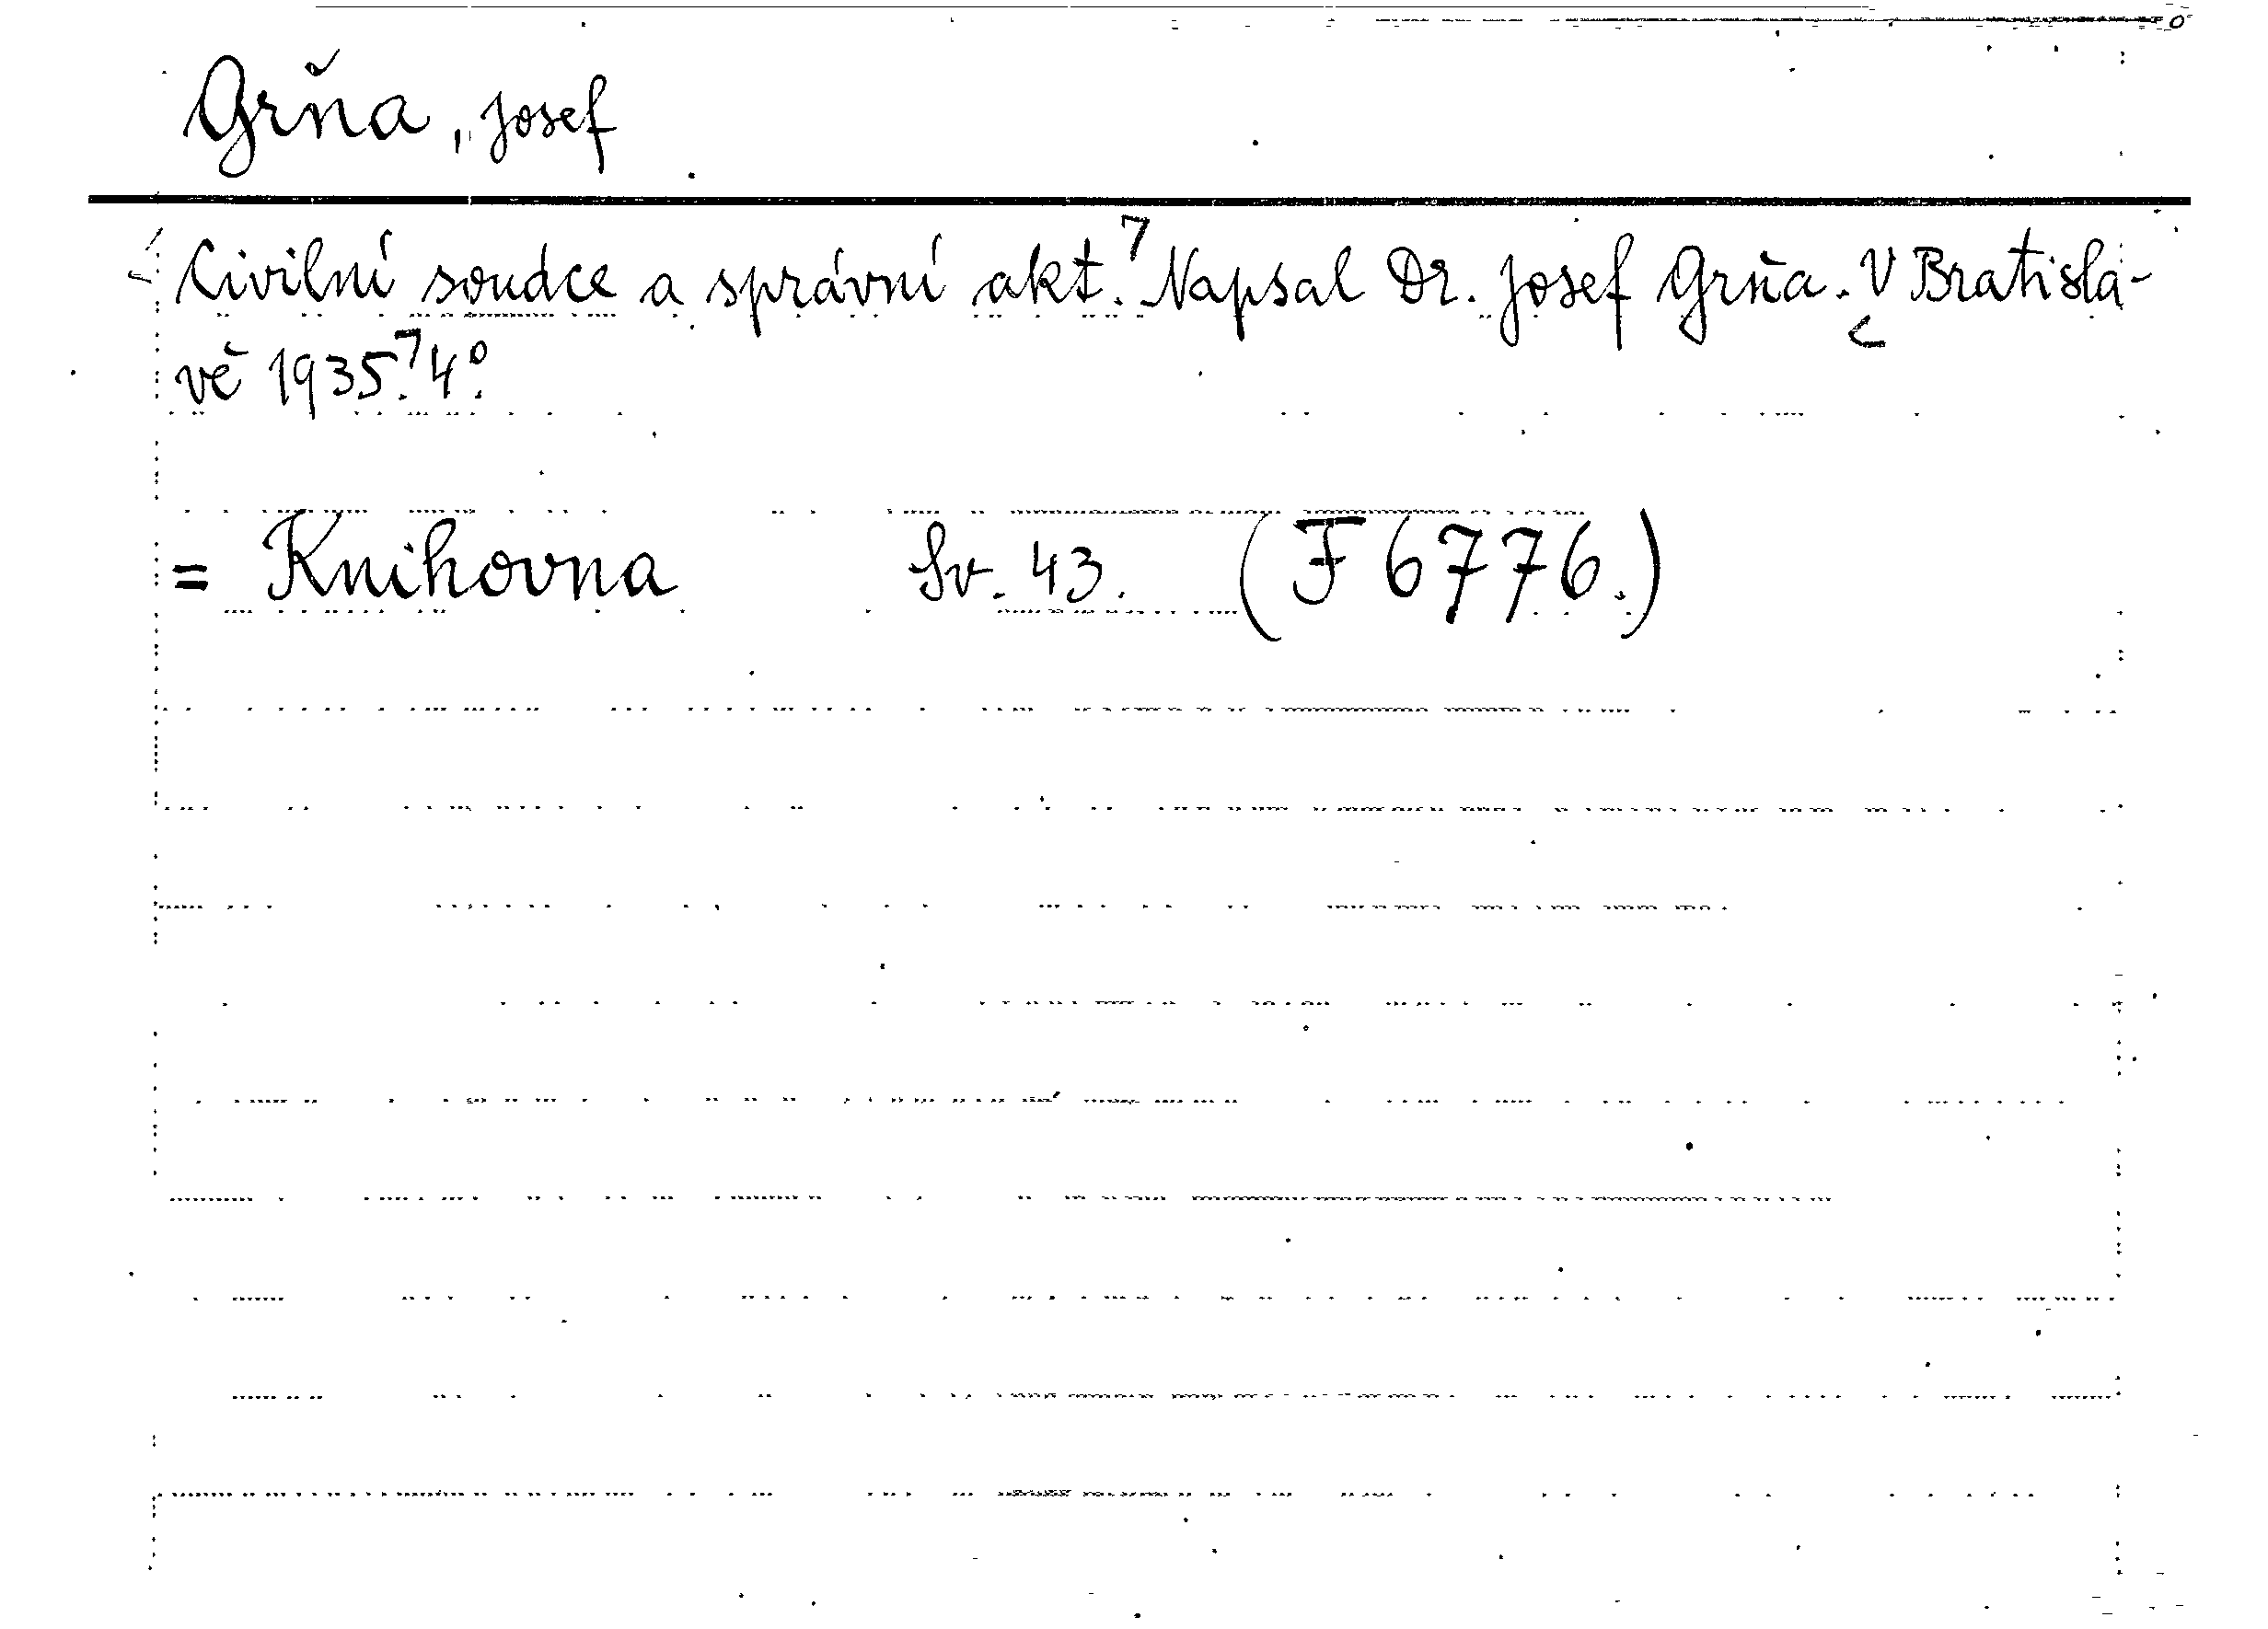 Grňa, Josef
Civilní soudce a správní akt. Napsal Dr. Josef Grňa. V Bratisla-
vě 1935. 4°.
= Knihovna Sv. 43. (F 6776.)